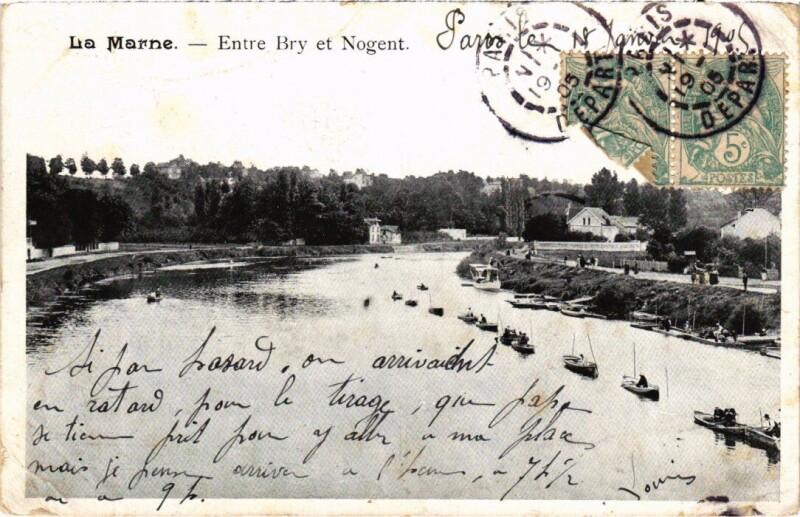 La Marne. — Entre Bry et Nogent.
Paris le 18 Janvier 190
PARIS
VI
19
05
DEPART
PARIS
VI
19
05
DEPART
5c
POSTES
Si par hasard, on arrivait
en ratard, pour le tirage, que papa
se tienne prêt pour y aller à ma place
mais je pense arriver à l'heure, à 7h½
ou à 9h.
Louis